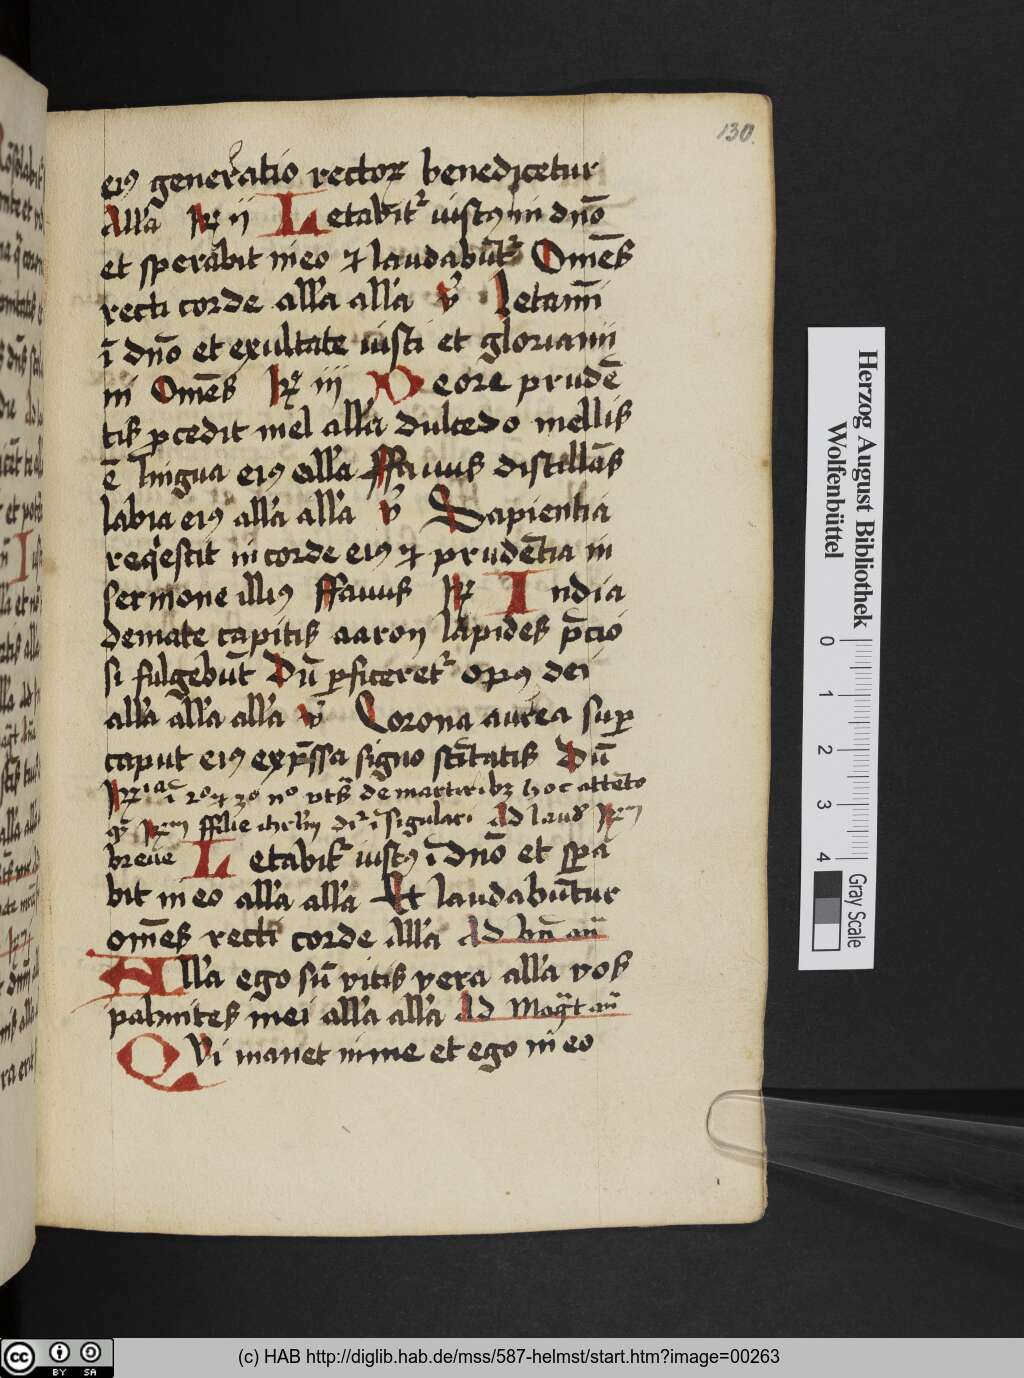 130
eiꝰ generatio rectoꝝ benedicetur
all'a ꝶ ij Letabit᷑ iustꝰ in dn̄o
et sperabit in eo ⁊ laudabūt᷑ Om̄es
recti corde all'a all'a v̄ Letamī
ī dn̄o et exultate iusti et gloriamī
ni Om̄es ꝶ iij De ore prudē
tis ꝓcedit mel all'a dulcedo mellis
ē lingua eiꝰ all'a ffauus distillās
labia eiꝰ all'a all'a v̄ Sapientia
req'escit in corde eiꝰ ⁊ prudētia in
sermone illiꝰ ffauus ꝶ In dia
demate capitis aaron lapides p̄cio
si fulgebūt Dū ꝑficeret᷑ opꝰ dei
all'a all'a all'a v̄ Corona aurea suꝑ
caput eiꝰ exp̄ssa signo sc̄itatis Dū
de martiribꝫ hoc attēto
ffilie ihrl'm singulari Ad laud'
breue Letabit᷑ iustꝰ ī dn̄o et sꝑa
bit in eo all'a all'a Et laudabūtur
om̄es recti corde all'a Ad bn̄ añ
All'a ego sū vitis vera all'a vos
palmites mei all'a all'a Ad Mag̃t añ
Qvi manet in me et ego in eo
Herzog August Bibliothek
Wolfenbüttel
0 1 2 3 4
Gray Scale
cc BY SA
(c) HAB http://diglib.hab.de/mss/587-helmst/start.htm?image=00263